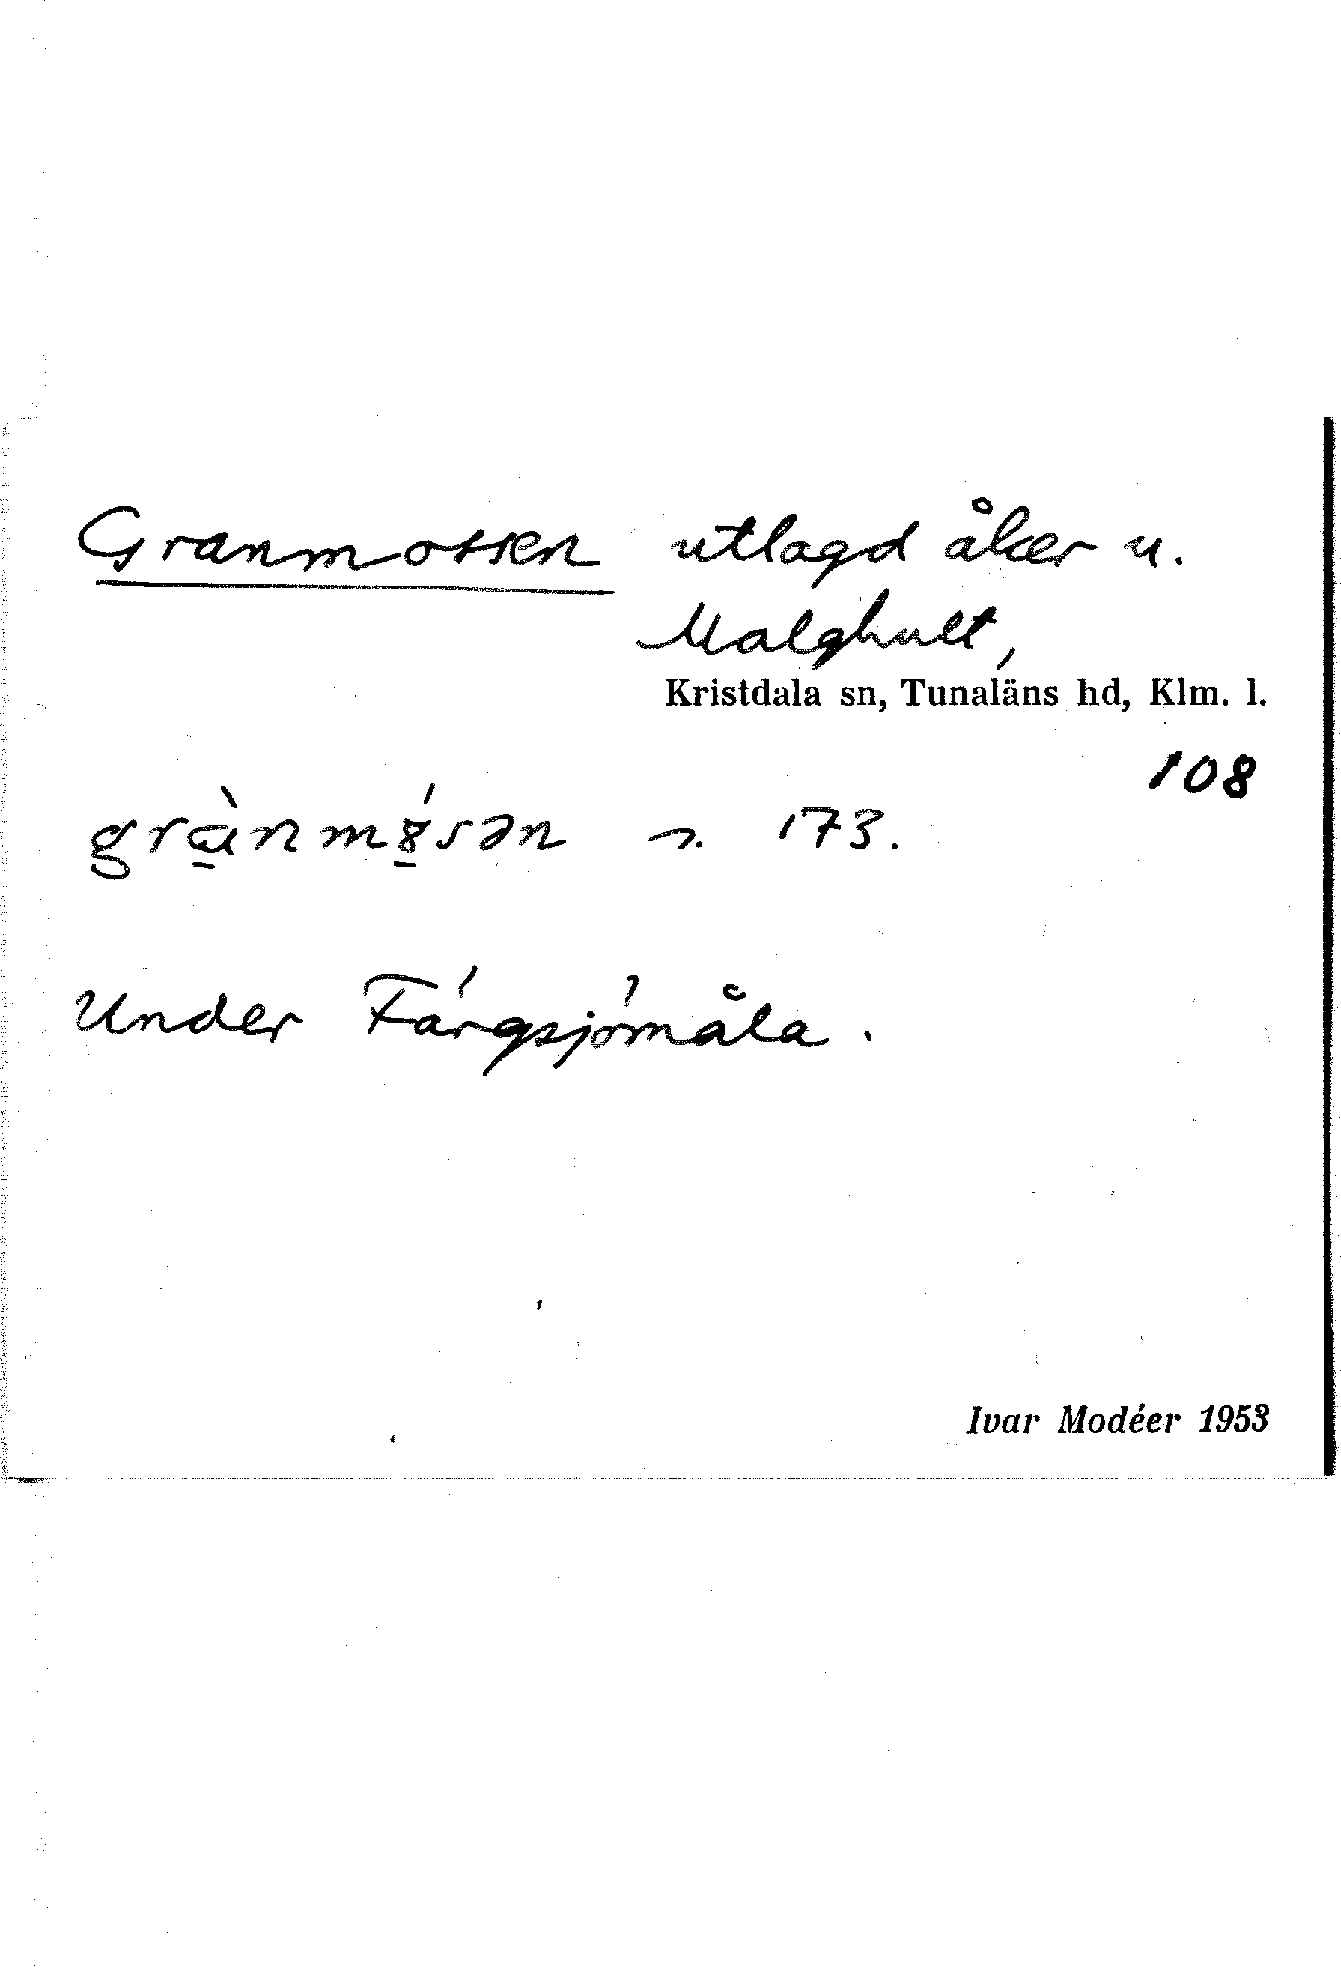 Granmossen utlagd åker u.
Malghult,
Kristdala sn, Tunaläns hd, Klm. l.
108
grɑ̠̀nm8̠́sən n. 173.
Under Färgsjömåla.
Ivar Modéer 1953